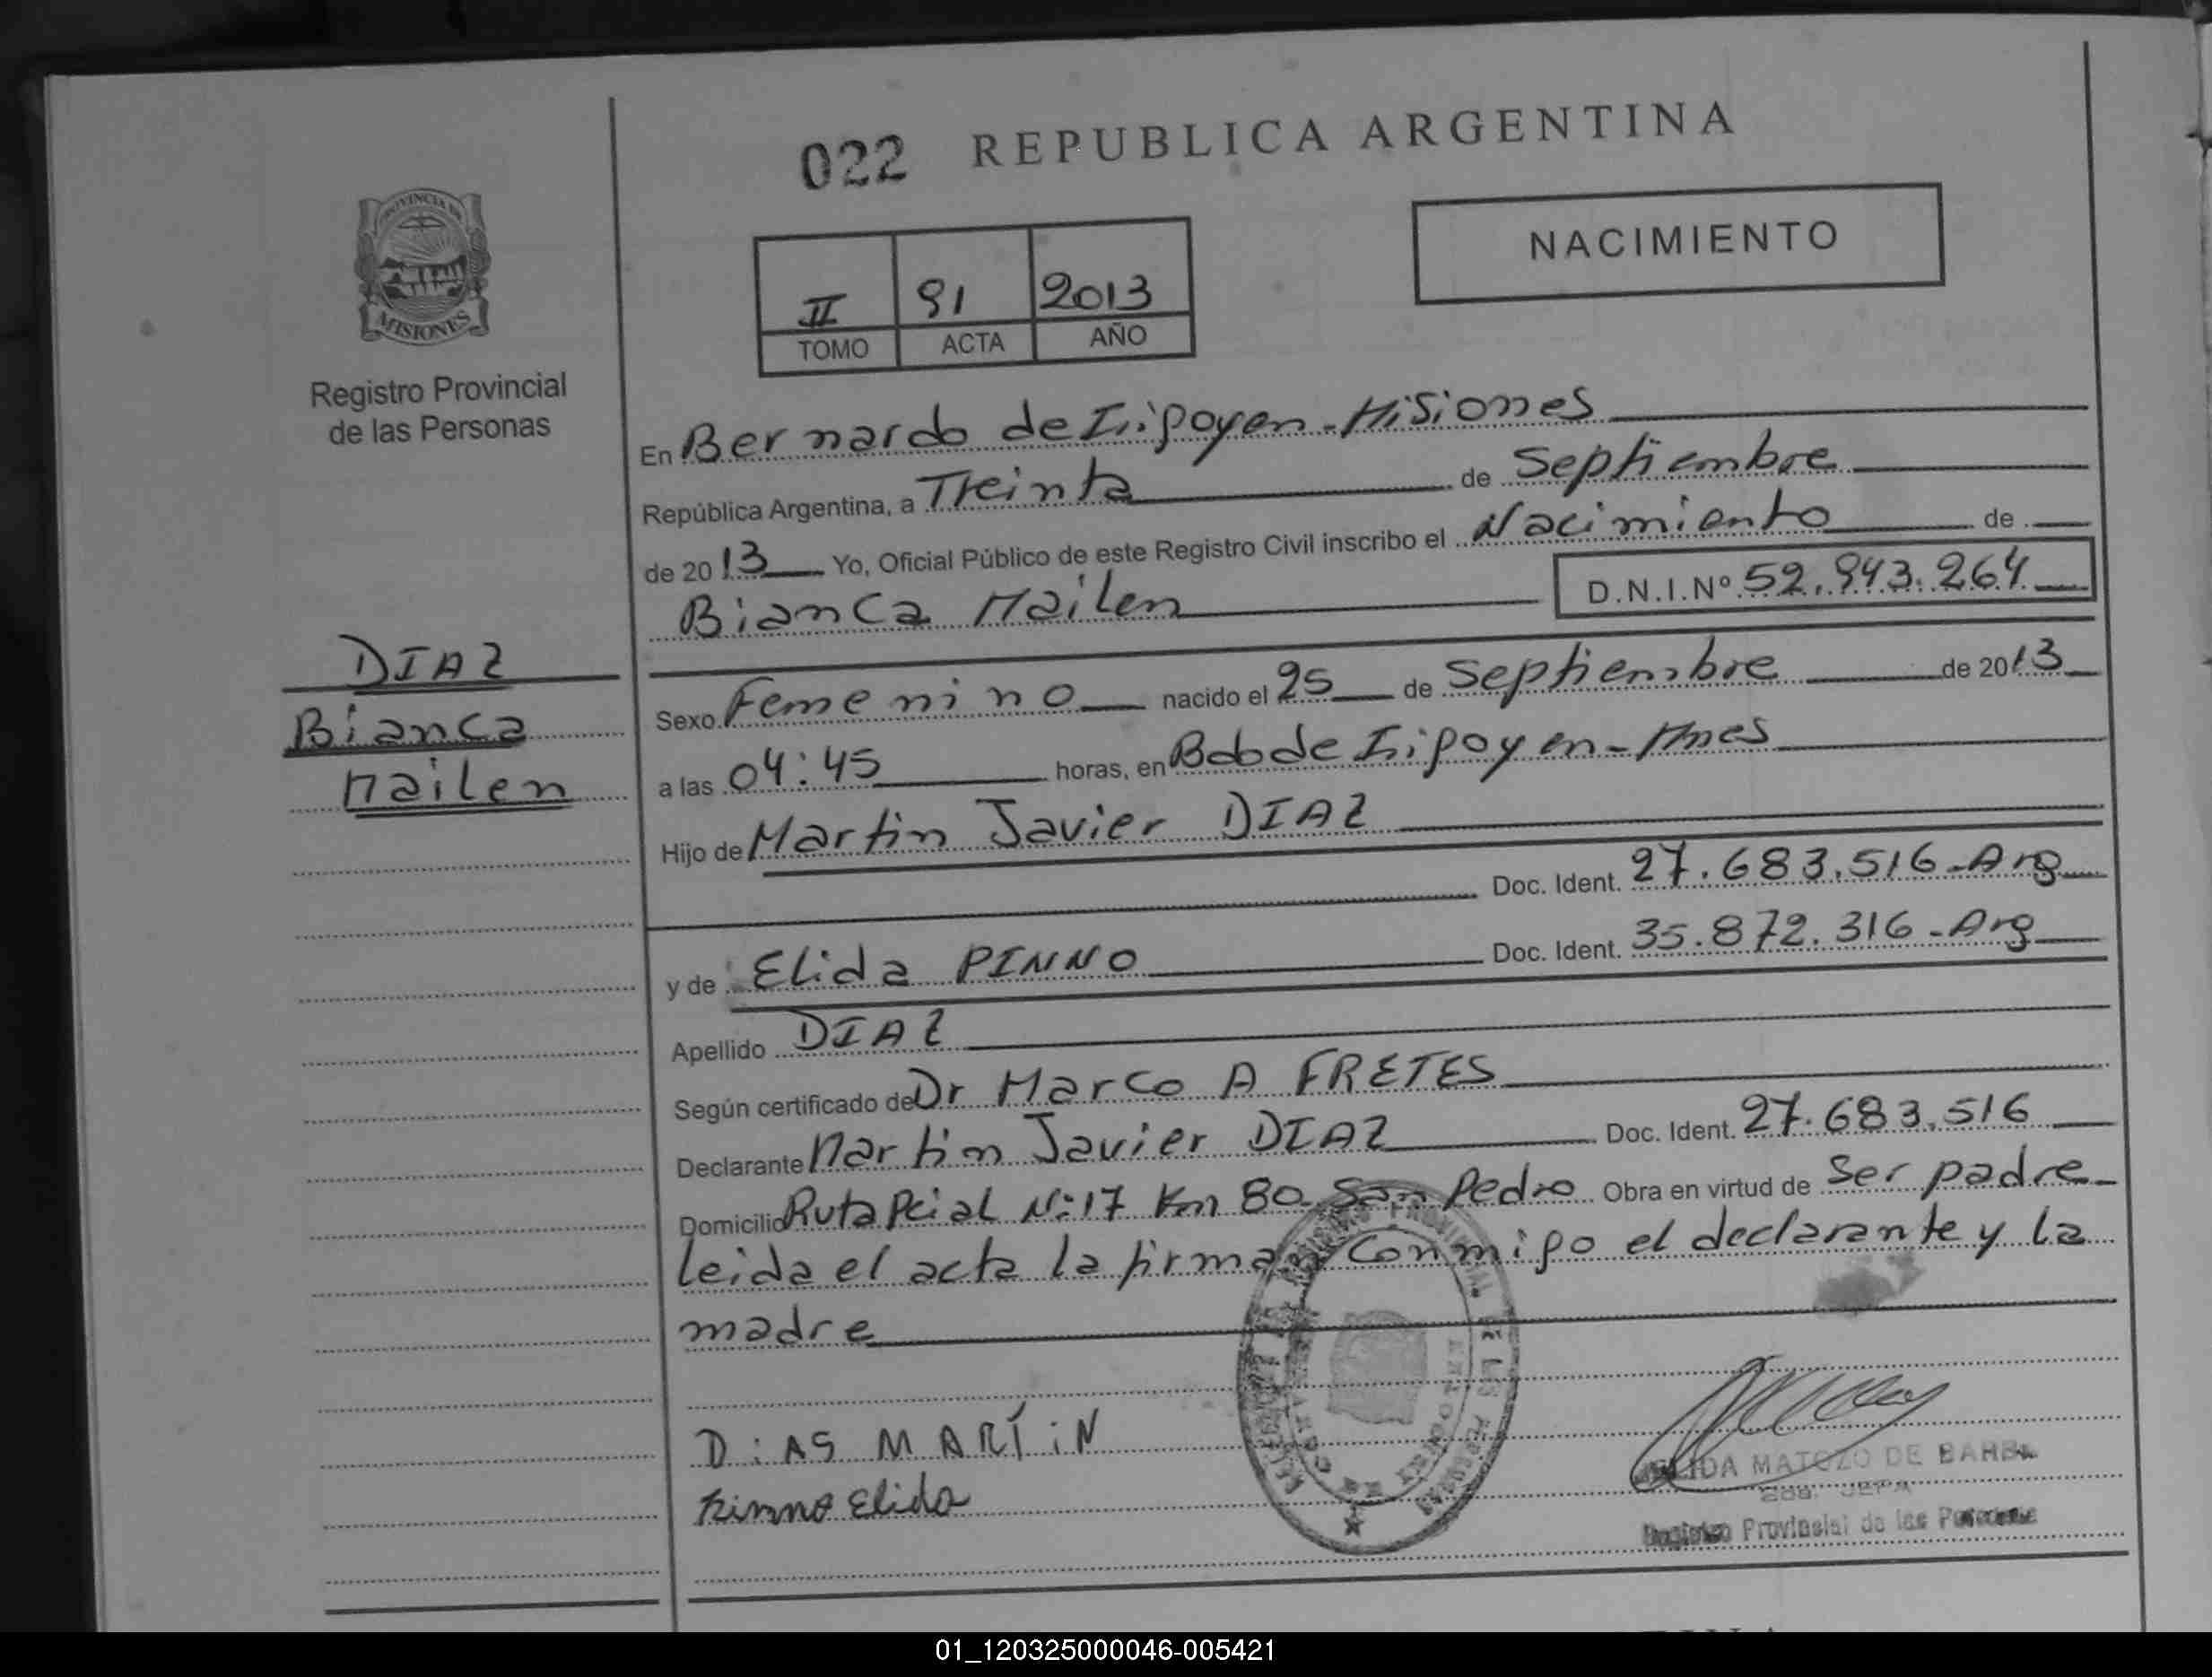 022 REPUBLICA ARGENTINA
NACIMIENTO
PROVINCIA DE
MISIONES
Registro Provincial
de las Personas
II 91 2013
TOMO ACTA AÑO
En Bernardo de Irigoyen - Misiones
República Argentina, a Treinta de Septiembre
de 2013 Yo, Oficial Público de este Registro Civil inscribo el Nacimiento de
Bianca Mailen D.N.I.Nº 52.943.264
DIAZ
Bianca
Mailen
Sexo Femenino nacido el 25 de Septiembre de 2013
a las 04:45 horas, en Bdo de Irigoyen - Mnes
Hijo de Martin Javier DIAZ
Doc. Ident. 27.683.516 - Arg
y de Elida PINNO Doc. Ident. 35.872.316 - Arg
Apellido DIAZ
Según certificado de Dr Marco A FRETES
Declarante Martin Javier DIAZ Doc. Ident. 27.683.516
Domicilio Ruta Pcial N:17 Km 80 San Pedro Obra en virtud de Ser padre
leida el acta la firman conmigo el declarante y la
madre
DiAS MARTiN
Pinno Elida
MATOZO DE BARBA
Registro Provincial de las Personas
01_120325000046-005421